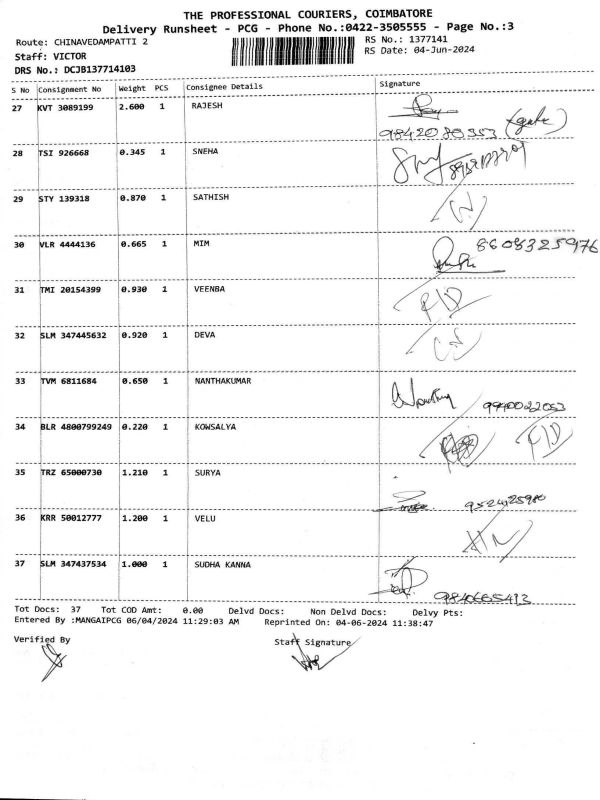 THE PROFESSIONAL COURIERS, COIMBATORE
Delivery Runsheet - PCG - Phone No.:0422-3505555 - Page No.:3
Route: CHINAVEDAMPATTI 2 RS No.: 1377141
Staff: VICTOR RS Date: 04-Jun-2024
DRS No.: DCJB137714103
S No Consignment No Weight PCS Consignee Details Signature
27 KVT 3089199 2.600 1 RAJESH
9842080353
28 TSI 926668 0.345 1 SNEHA
29 STY 139318 0.870 1 SATHISH
30 VLR 4444136 0.665 1 MIM 8608325976
31 TMI 20154399 0.930 1 VEENBA
32 SLM 347445632 0.920 1 DEVA
33 TVM 6811684 0.650 1 NANTHAKUMAR
9940022053
34 BLR 4800799249 0.220 1 KOWSALYA
35 TRZ 65000730 1.210 1 SURYA
36 KRR 50012777 1.200 1 VELU
37 SLM 347437534 1.000 1 SUDHA KANNA
Tot Docs: 37 Tot COD Amt: 0.00 Delvd Docs: Non Delvd Docs: Delvy Pts:
Entered By :MANGAIPCG 06/04/2024 11:29:03 AM Reprinted On: 04-06-2024 11:38:47
Verified By Staff Signature